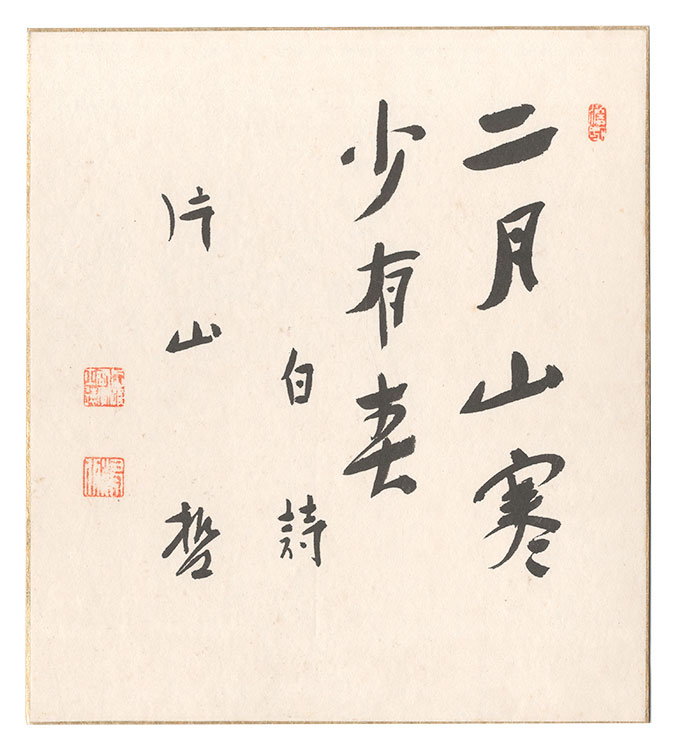 二月山寒
少有春
白詩
片山哲